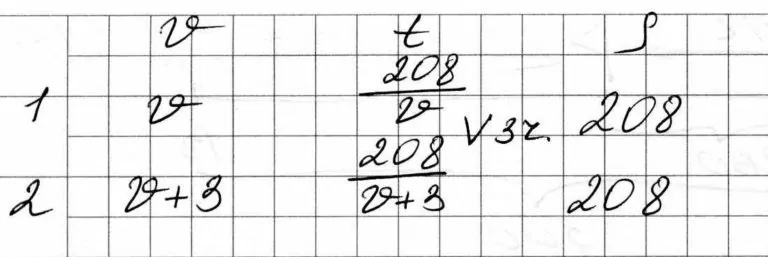 v t S
1 v 208/v V 3ч. 208
2 v+3 208/v+3 208